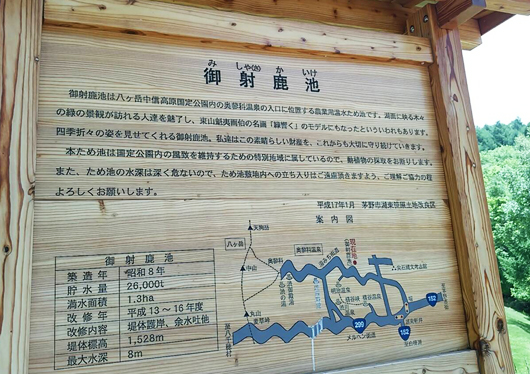 みしゃ(か)かいけ
御射鹿池
御射鹿池は八ヶ岳中信高原国定公園内の奥蓼科温泉の入口に位置する農業用温水ため池です。湖面に映る木々
の緑の景観が訪れる人達を魅了し、東山魁夷画伯の名画「緑響く」のモデルにもなったといういわれもあります。
四季折々の姿を見せてくれる御射鹿池。私達はこの素晴らしい財産を、これからも大切に守り続けていきます。
本ため池は国定公園内の風致を維持するための特別地域に属しているので、動植物の採取をお断りします。
また、ため池の水深は深く危ないので、ため池敷地内への立ち入りはご遠慮頂きますよう、ご理解ご協力の程
よろしくお願いします。
平成17年1月 茅野市湖東笹原土地改良区
案内図
御射鹿池
築造年 昭和8年
貯水量 26,000t
満水面積 1.3ha
改修年 平成13〜16年度
改修内容 堤体護岸、余水吐他
堤体標高 1,528m
最大水深 8m
天狗岳
八ヶ岳
中山
丸山
麦草峠
奥蓼科
奥蓼科温泉
現在地
メルヘン街道
299
152
152